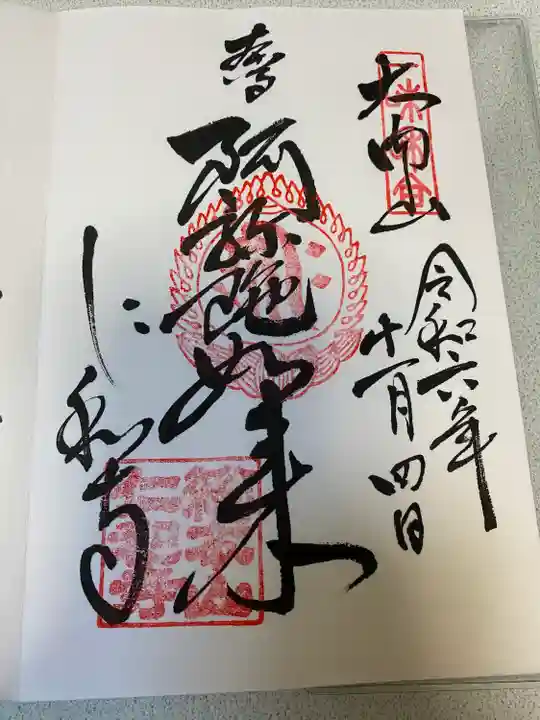 大内山
令和六年
十一月四日
奉
阿弥陀如来
仁和寺